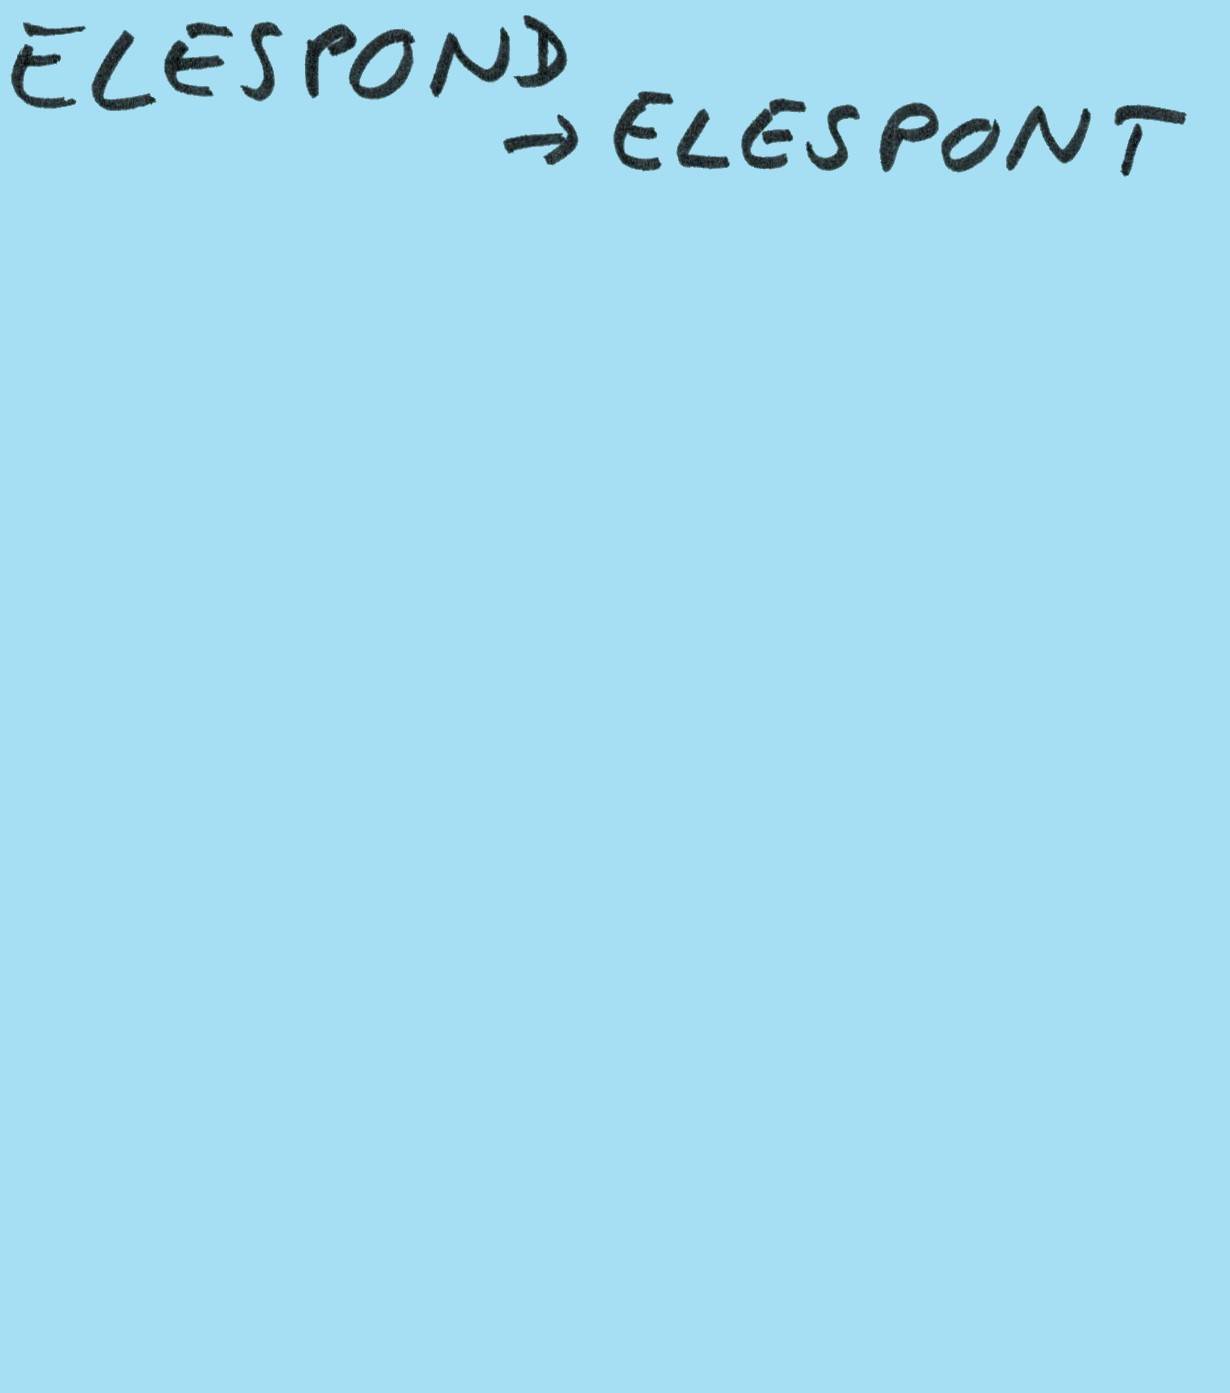 ELESPOND
→ ELESPONT